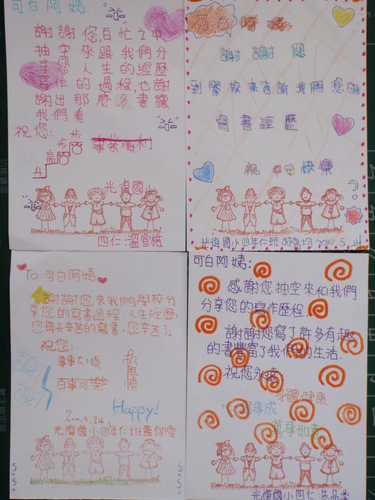 可白阿姨:
謝謝您百忙之中
抽空來跟我們分
享您人生的經歷
寫作的過程,也謝
謝出那麼多書讓
我們看
祝您:
步步高升
事業順利
光復國小
四仁:溫宜榕
謝謝您
到學校來書簡我們您的
寫書經歷
祝快樂
光復國小四年仁班
To:可白阿姨
謝謝您來我們學校分
享您的寫書過程、人生經歷,
您每天辛苦的寫書,您辛苦了。
祝您:
事事大順
百事可樂
Happy!
光復國小四年仁班
可白阿姨:
感謝您抽空來和我們
分享您的寫作歷程
謝謝您寫了許多有趣
的書豐富了我們的生活
祝您永遠
身體健康
學成
萬事如意
光復國小四仁